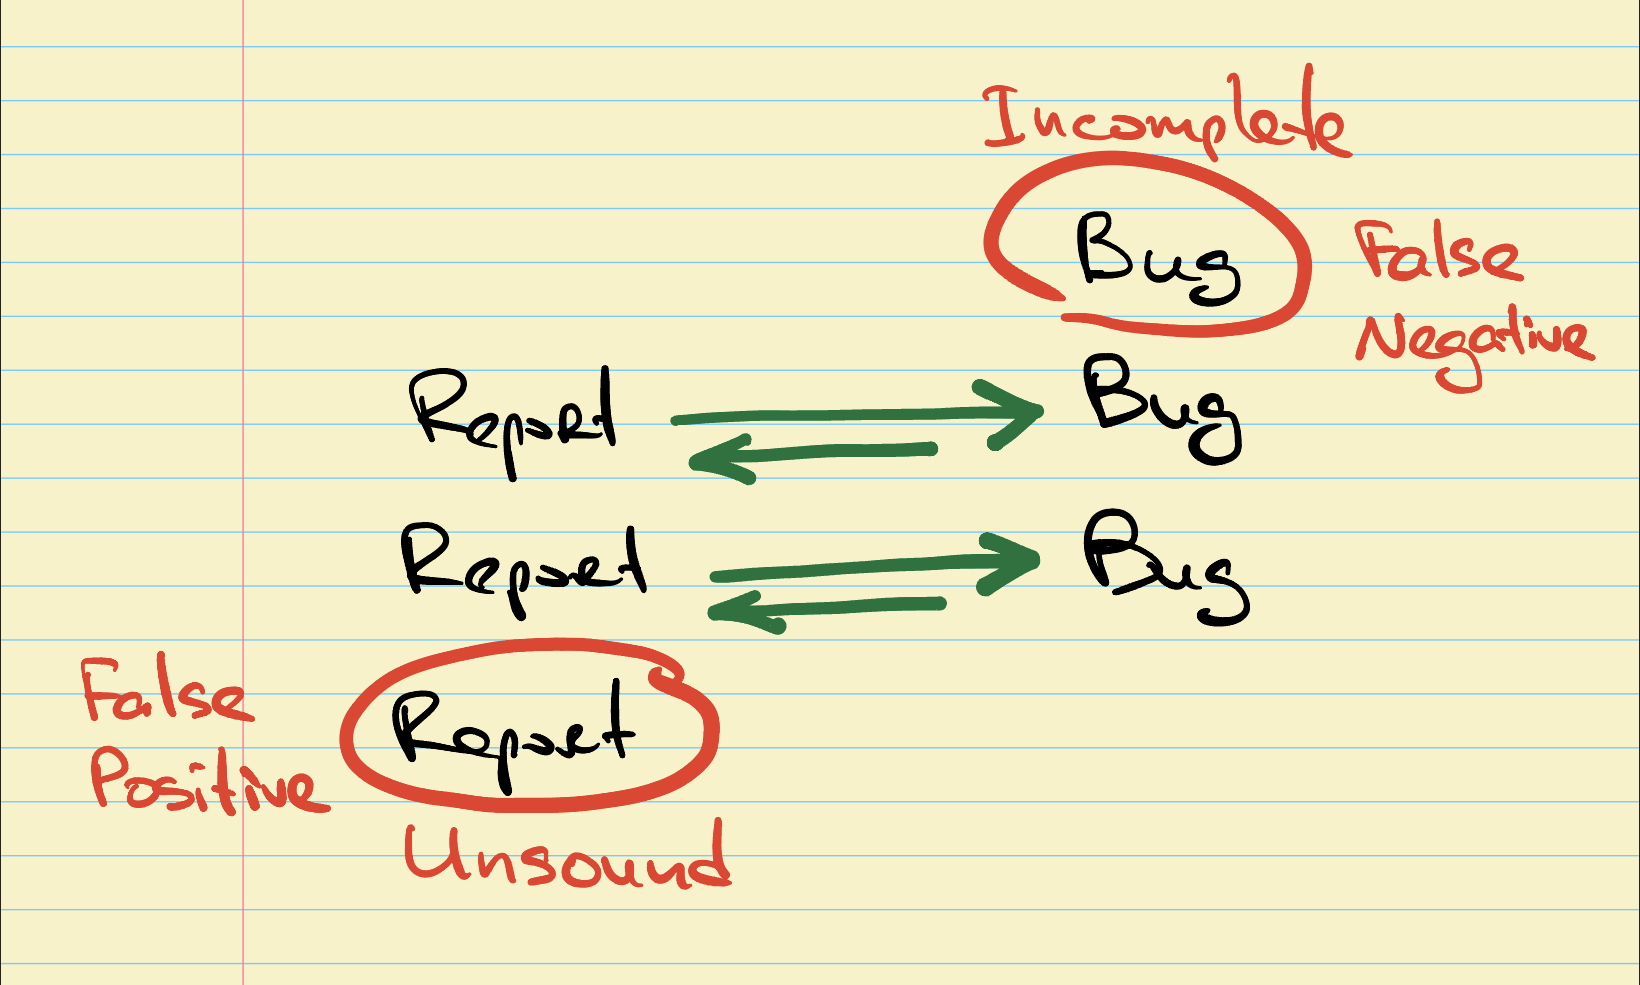 Incomplete
Bug
False
Negative
Report Bug
Report Bug
False
Positive
Report
Unsound